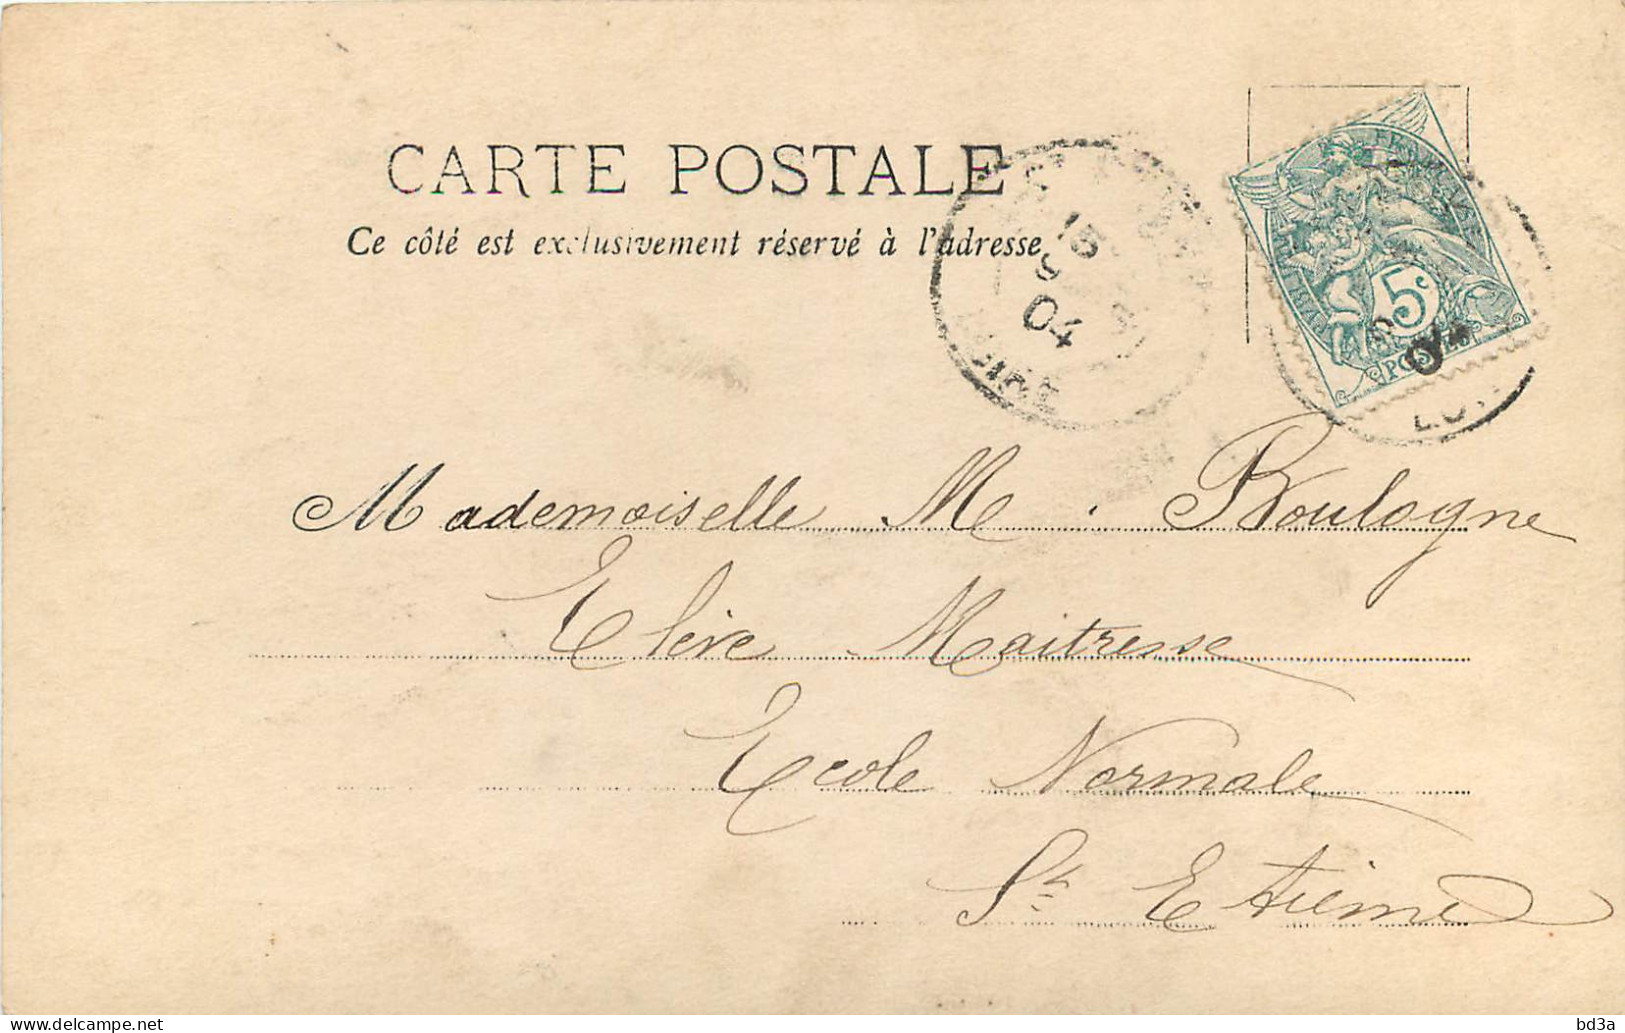 CARTE POSTALE
Ce côté est exclusivement réservé à l'adresse
15
9
04
LOIRE
5c
POSTES
04
Mademoiselle M. Boulogne
Elève Maitresse
Ecole Normale
St Etienne
delcampe.net
bd3a